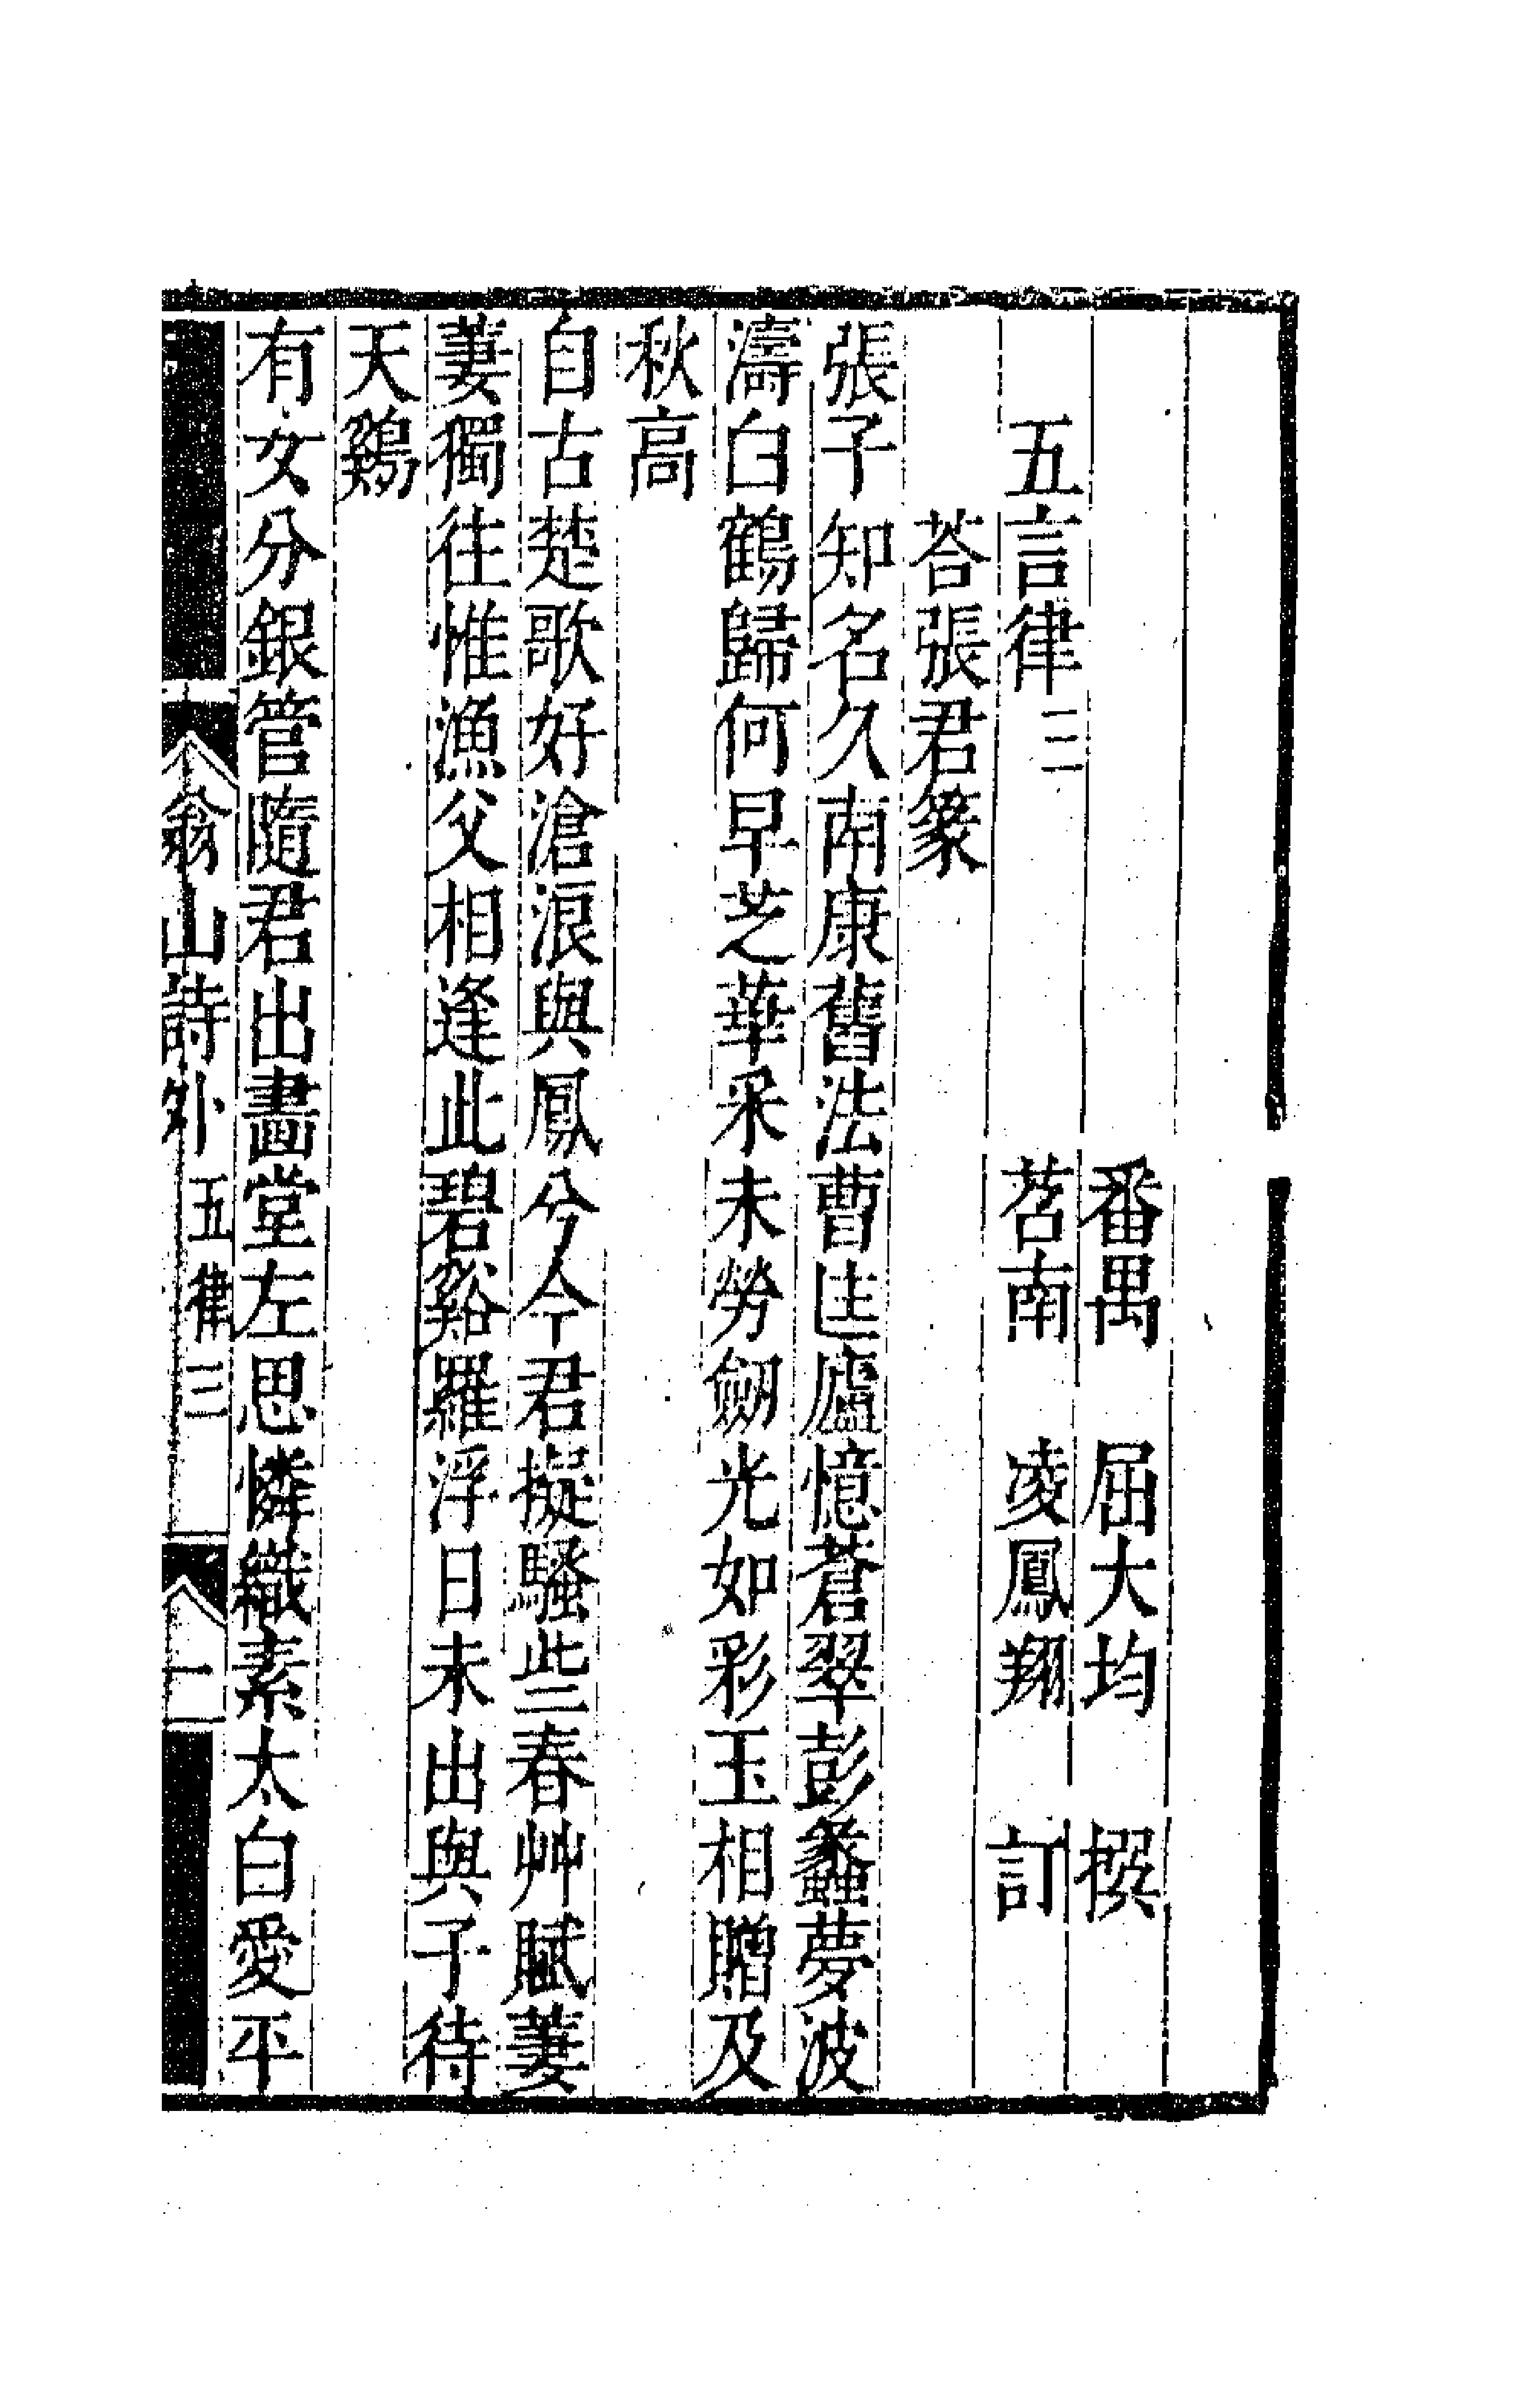 番禺　屈大均　撰
五言律三　苕南　凌鳳翔　訂
荅張君篆
張子知名久南康舊法曹匡廬憶蒼翠彭蠡夢波
濤白鶴歸何早芝華采未勞劒光如彩玉相贈及
秋高
自古楚歌好滄浪與鳳兮今君擬騷些春艸賦萋
萋獨往惟漁父相逢此碧谿羅浮日未出與子待
天鷄
有女分銀管隨君出畵堂左思憐織素太白愛平
翁山詩外　五律三　一